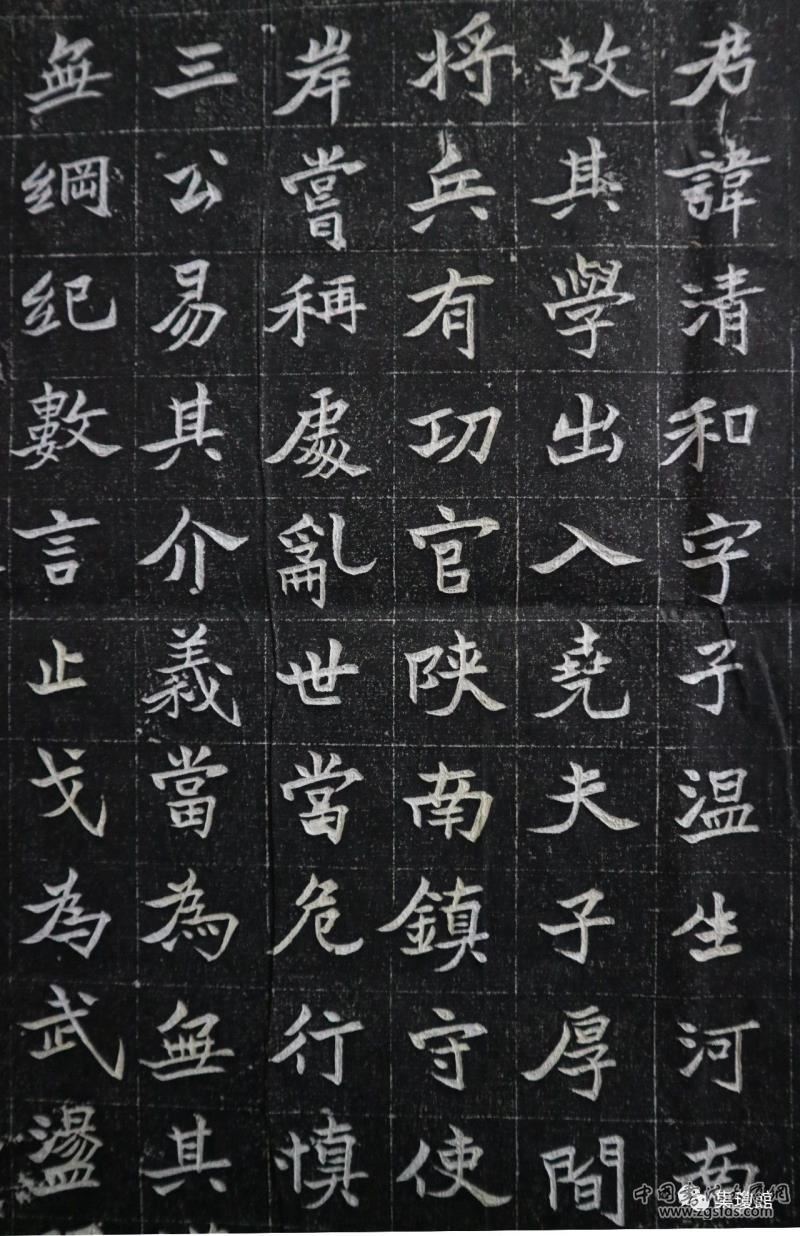 君諱清和字子温生河南
故其學出入堯夫子厚間
将兵有功官陕南鎮守使
岸嘗稱處亂世當危行慎
三公易其介義當為無其
無綱紀數言止戈為武盪
集瓊館
www.zgsfds.com